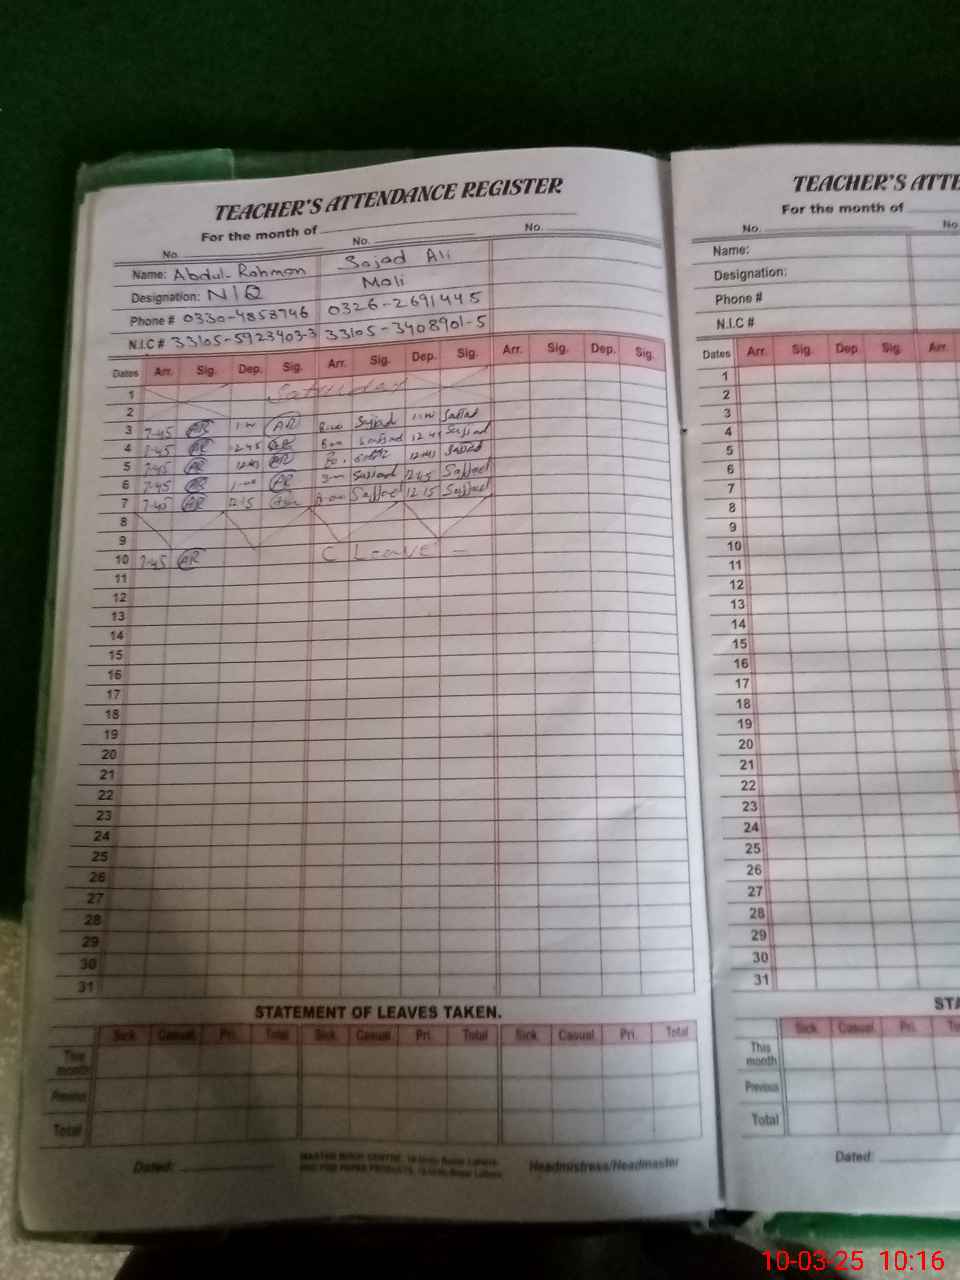 TEACHER'S ATTENDANCE REGISTER
For the month of
No. No. No.
Name: Abdul-Rahman Sajad Ali
Designation: N/Q Mali
Phone # 0330-4858746 0326-2691445
N.I.C # 33105-5923403-3 33105-3408901-5
Dates Arr. Sig. Dep. Sig. Arr. Sig. Dep. Sig. Arr. Sig. Dep. Sig.
1 Saturday
2
3 7-45 AR AR 8-00 Sajjad Sajjad
4 7-45 AR 12-45 Sajjad 12-45 Sajjad
5 7-45 AR AR
6 7-45 AR 1-00 AR Sajjad 12-45 Sajjad
7 7-45 AR 12-15 8-00 Sajjad 12-15 Sajjad
8
9
10 7-45 AR C Leave
11
12
13
14
15
16
17
18
19
20
21
22
23
24
25
26
27
28
29
30
31
STATEMENT OF LEAVES TAKEN.
Sick Casual Pri. Total Sick Casual Pri. Total Sick Casual Pri. Total
This month
Previous
Total
Dated: Headmistress/Headmaster
TEACHER'S ATTE
For the month of
No. No
Name:
Designation:
Phone #
N.I.C #
Dates Arr. Sig. Dep Sig. Arr.
1
2
3
4
5
6
7
8
9
10
11
12
13
14
15
16
17
18
19
20
21
22
23
24
25
26
27
28
29
30
31
STA
Sick Casual Pri. T
This month
Previous
Total
Dated:
10-03-25 10:16